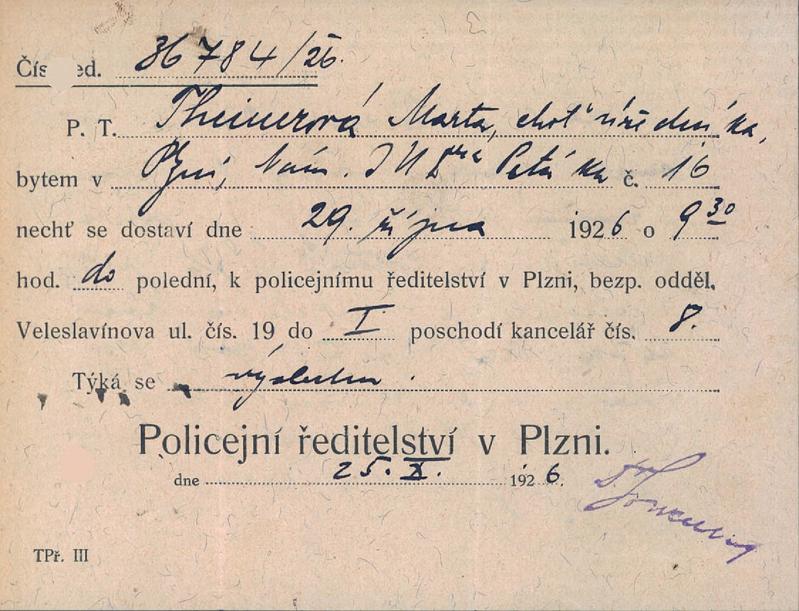 Čís ed. 36784/26.
P. T. Theinerová Marta, choť úředníka,
bytem v Plzni, Nám. JUDra Petáka č. 16
nechť se dostaví dne 29. října 1926 o 9 30
hod. do polední, k policejnímu ředitelství v Plzni, bezp. odděl.
Veleslavínova ul. čís. 19 do I poschodí kancelář čís. 8.
Týká se výslechu.
Policejní ředitelství v Plzni.
dne 25. X. 1926.
TPř. III